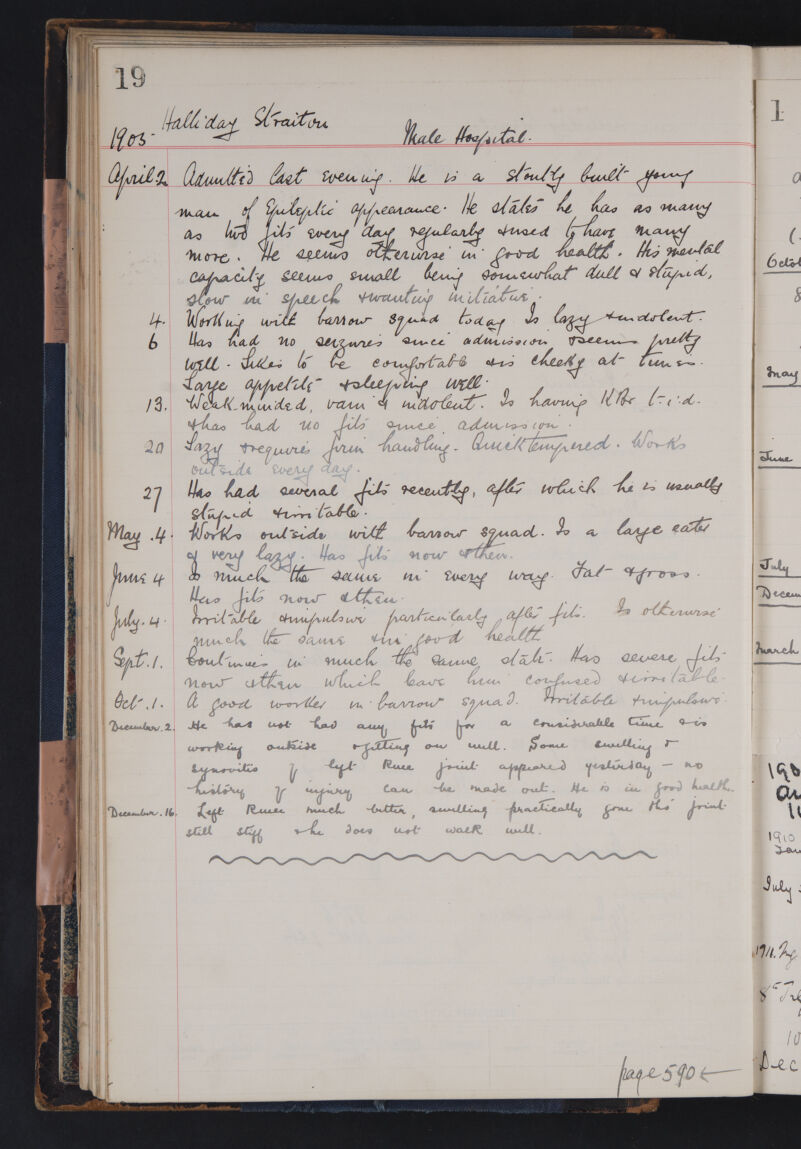 19
Halliday Straiton
1905. Male Hospital.
April 2 Admitted last evening. He is a stoutly built young
man of Epileptic appearance. He states he has as many
as two fits every day regularly & used to have many
more. He seems otherwise in good health. His mental
capacity seems small being somewhat dull & stupid,
slow in speech & wanting initiative.
4. Working with barrow squad today Is lazy & indolent.
6 Has had no seizures since admission & seems pretty
well. Likes to be comfortable & is cheeky at times.
Large appetite & sleeping well.
13. Weak-minded, vain & indolent. Is having K Br t.i.d.
& has had no fits since admission.
20 Lazy & requires firm handling. Quick tempered. Works
outside every day.
27 Has had several fits recently, after which he is usually
stupid & irritable.
May .4. Works outside with barrow squad. Is a large eater
& very lazy. Has fits now & then.
June 4 Is much the same in every way. Fat & gross.
Has fits now & then.
July. 4. Irritable & impulsive particularly after fits. Is otherwise
much the same & in good health
Sept. 1. Continues in much the same state. Has severe fits
now & then which leave him confused & irritable.
Oct. 1. A good worker in barrow squad. Irritable & impulsive.
December. 2. He has not had any fits for a considerable time & is
working outside & getting on well. Some swelling &
synovitis of left knee joint appeared yesterday – no
history of injury can be made out. He is in good health.
December. 16. Left knee much better, swelling practically gone tho' joint
still stiff & he does not walk well.
page 590 ←
1
Octob
may
June
July
Decem
march
190
1910
July
1911.
Dec